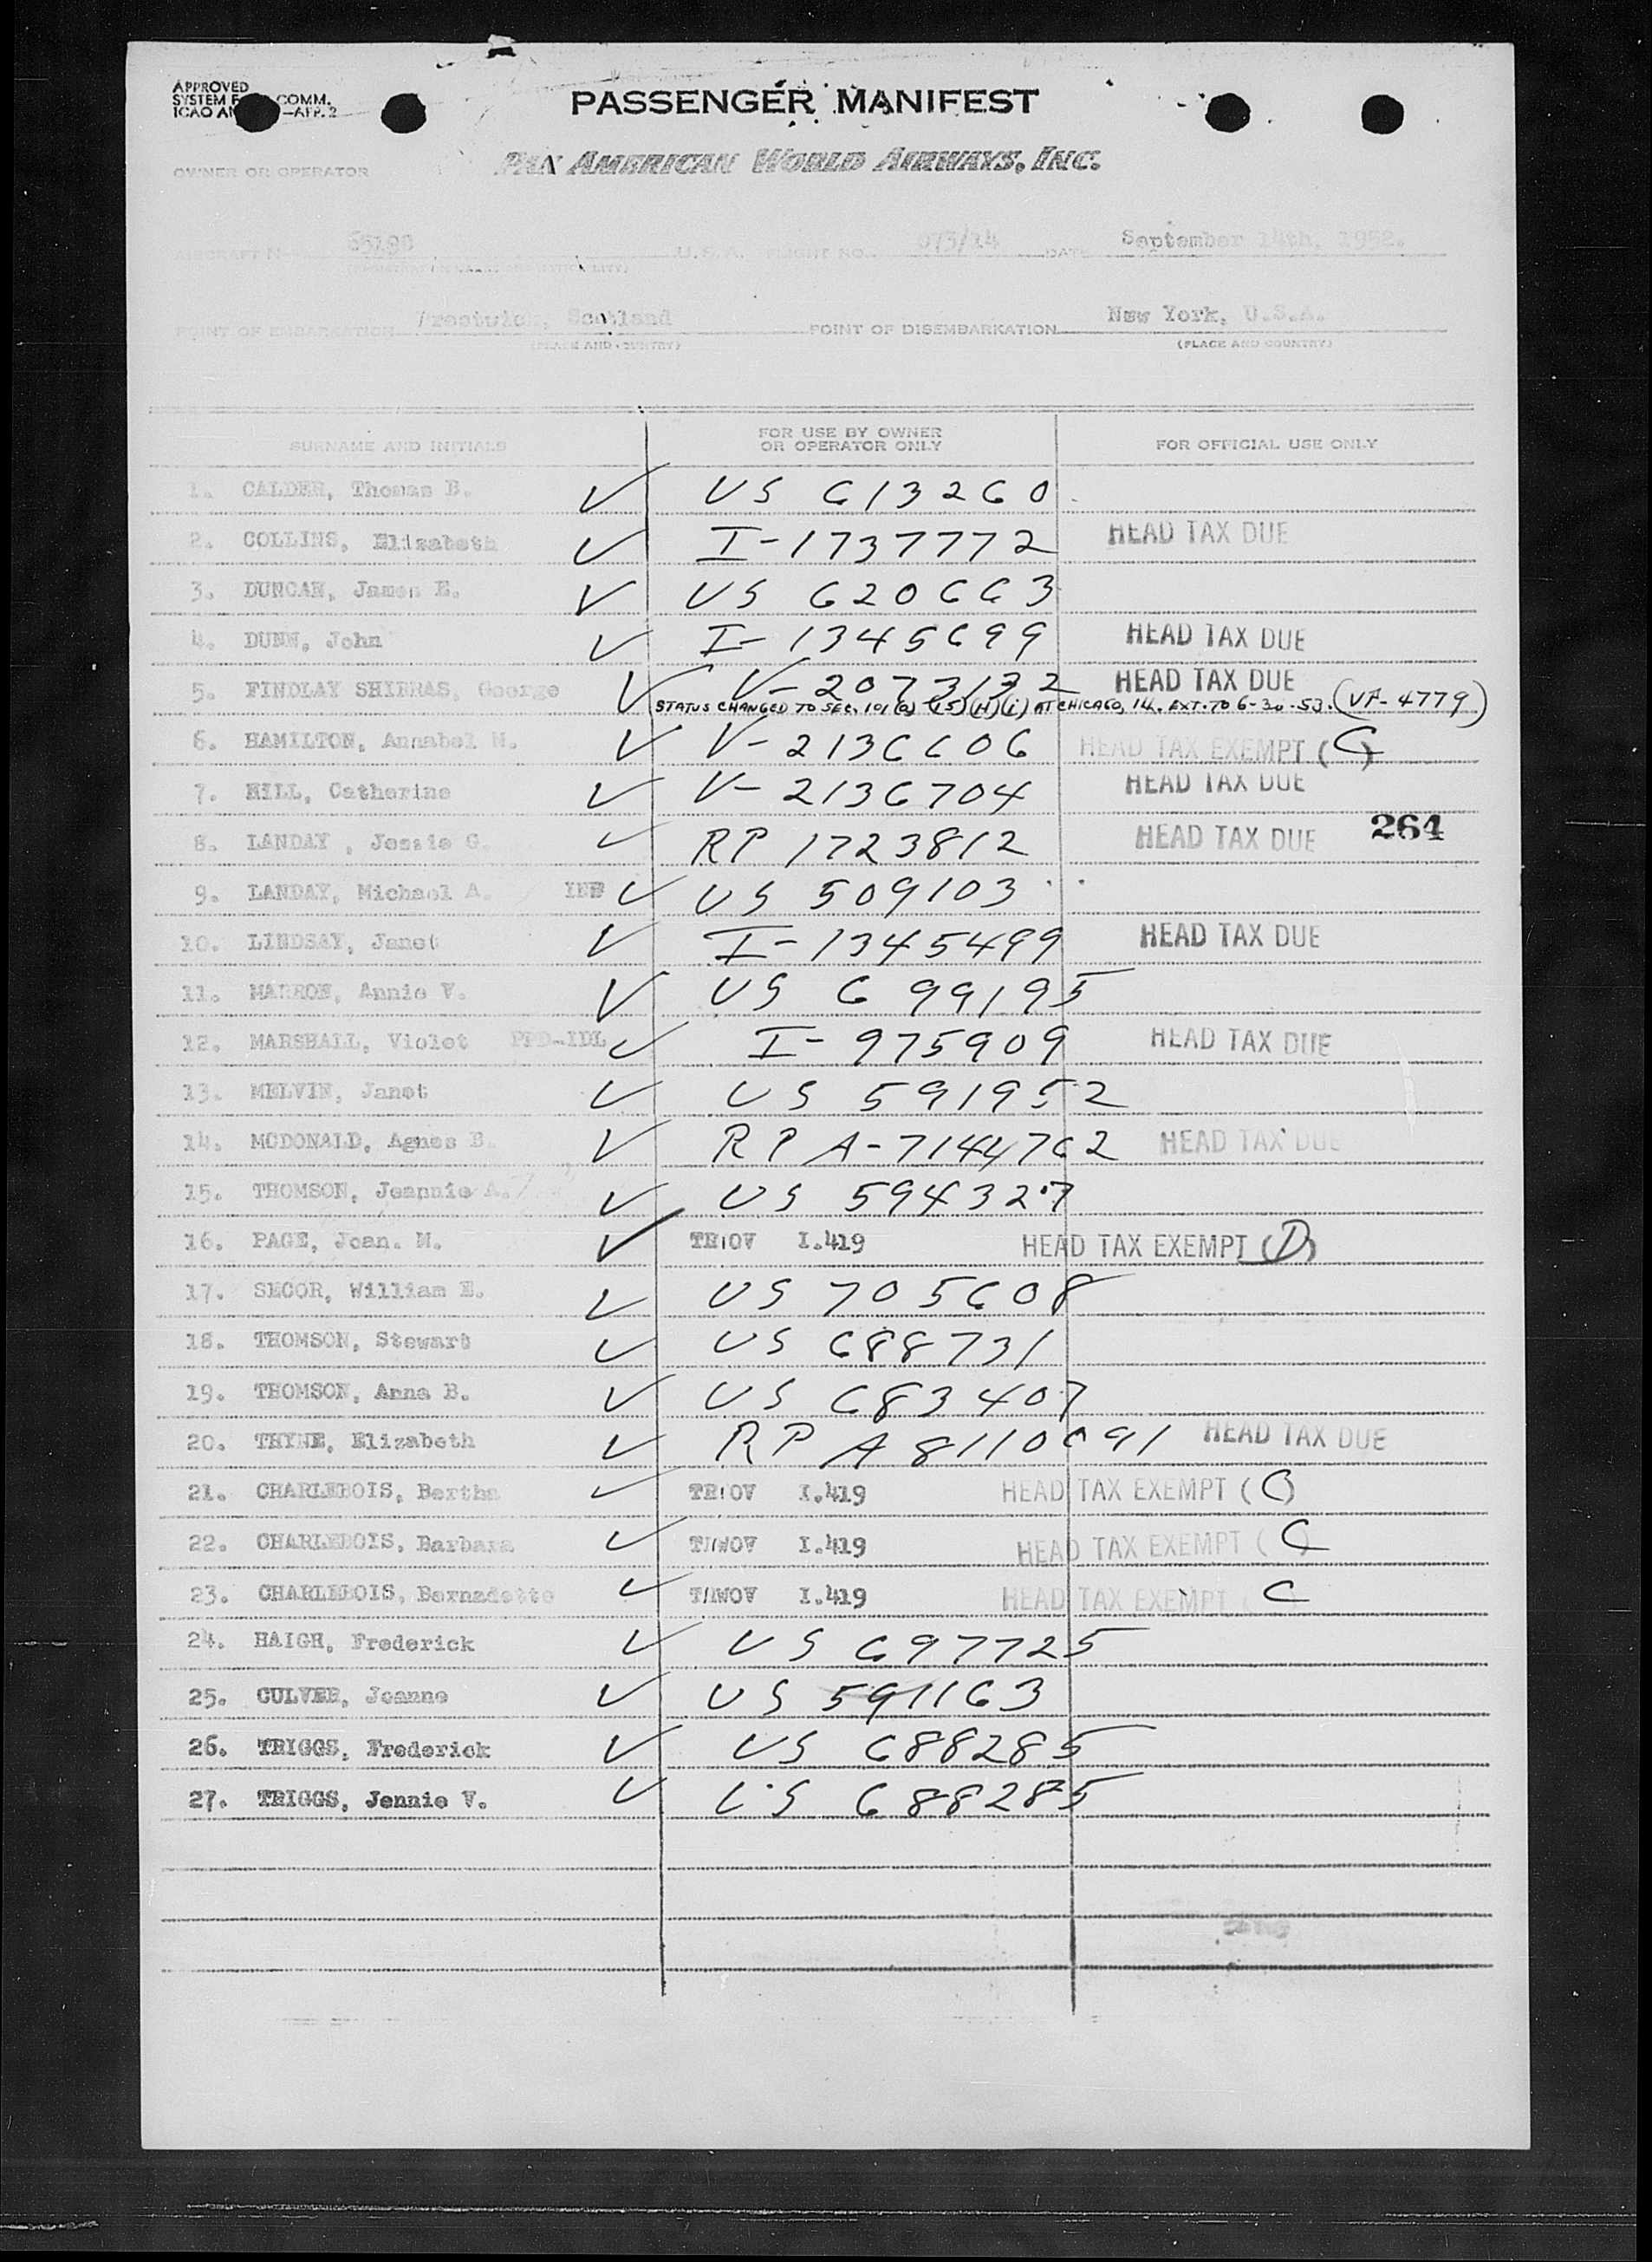 APPROVED
SYSTEM COMM.
ICAO AN —APP. 2
PASSENGER MANIFEST
OWNER OR OPERATOR
PAN AMERICAN WORLD AIRWAYS, INC.
U.S.A. FLIGHT NO. 073/14 DATE September 14th, 1952.
POINT OF EMBARKATION Prestwick, Scotland POINT OF DISEMBARKATION New York, U.S.A.
(PLACE AND COUNTRY) (PLACE AND COUNTRY)
SURNAME AND INITIALS FOR USE BY OWNER OR OPERATOR ONLY FOR OFFICIAL USE ONLY
1. CALDER, Thomas B. ✓ US 613260
2. COLLINS, Elizabeth ✓ I-1737772 HEAD TAX DUE
3. DUNCAN, James E. ✓ US 620663
4. DUNN, John ✓ I-1345699 HEAD TAX DUE
5. FINDLAY SHIRRAS, George ✓ V-2073132 HEAD TAX DUE
STATUS CHANGED TO SEC. 101 (a) (15) (H) (i) AT CHICAGO, Ill. EXT. TO 6-30-53. (VF-4779)
6. HAMILTON, Annabel M. ✓ V-2136606 HEAD TAX EXEMPT (C)
7. HILL, Catherine ✓ V-2136704 HEAD TAX DUE
8. LANDAY, Jessie G. ✓ RP 1723812 HEAD TAX DUE 264
9. LANDAY, Michael A. INF ✓ US 509103
10. LINDSAY, Janet ✓ I-1345499 HEAD TAX DUE
11. MARRON, Annie V. ✓ US 699195
12. MARSHALL, Violet PPD-IDL ✓ I-975909 HEAD TAX DUE
13. MELVIN, Janet ✓ US 591952
14. MCDONALD, Agnes B. ✓ RP A-7144762 HEAD TAX DUE
15. THOMSON, Jeannie A. ✓ US 594327
16. PAGE, Joan. M. ✓ TRWOV I.419 HEAD TAX EXEMPT (D)
17. SECOR, William E. ✓ US 705608
18. THOMSON, Stewart ✓ US 688731
19. THOMSON, Anna B. ✓ US 683407
20. THYNE, Elizabeth ✓ RP A8110091 HEAD TAX DUE
21. CHARLEBOIS, Bertha ✓ TRWOV I.419 HEAD TAX EXEMPT (C)
22. CHARLEBOIS, Barbara ✓ TRWOV I.419 HEAD TAX EXEMPT (C)
23. CHARLEBOIS, Bernadette ✓ TRWOV I.419 HEAD TAX EXEMPT (C
24. HAIGH, Frederick ✓ US 697725
25. CULVER, Joanne ✓ US 591163
26. TRIGGS, Frederick ✓ US 688285
27. TRIGGS, Jennie V. ✓ US 688285